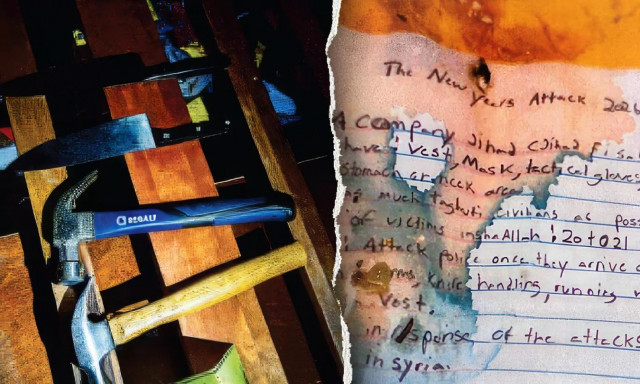 The New
Years Attack 2026
A Company Jihad (Jihad
have: Vest, Mask, tactical gloves
stomach or neck area
much taghuti civilians as
of victims inshaAllah: 20 to 21
Attack police once they arrive
arms, Knife handling, running
Vest.
in response of the attacks
in syria.